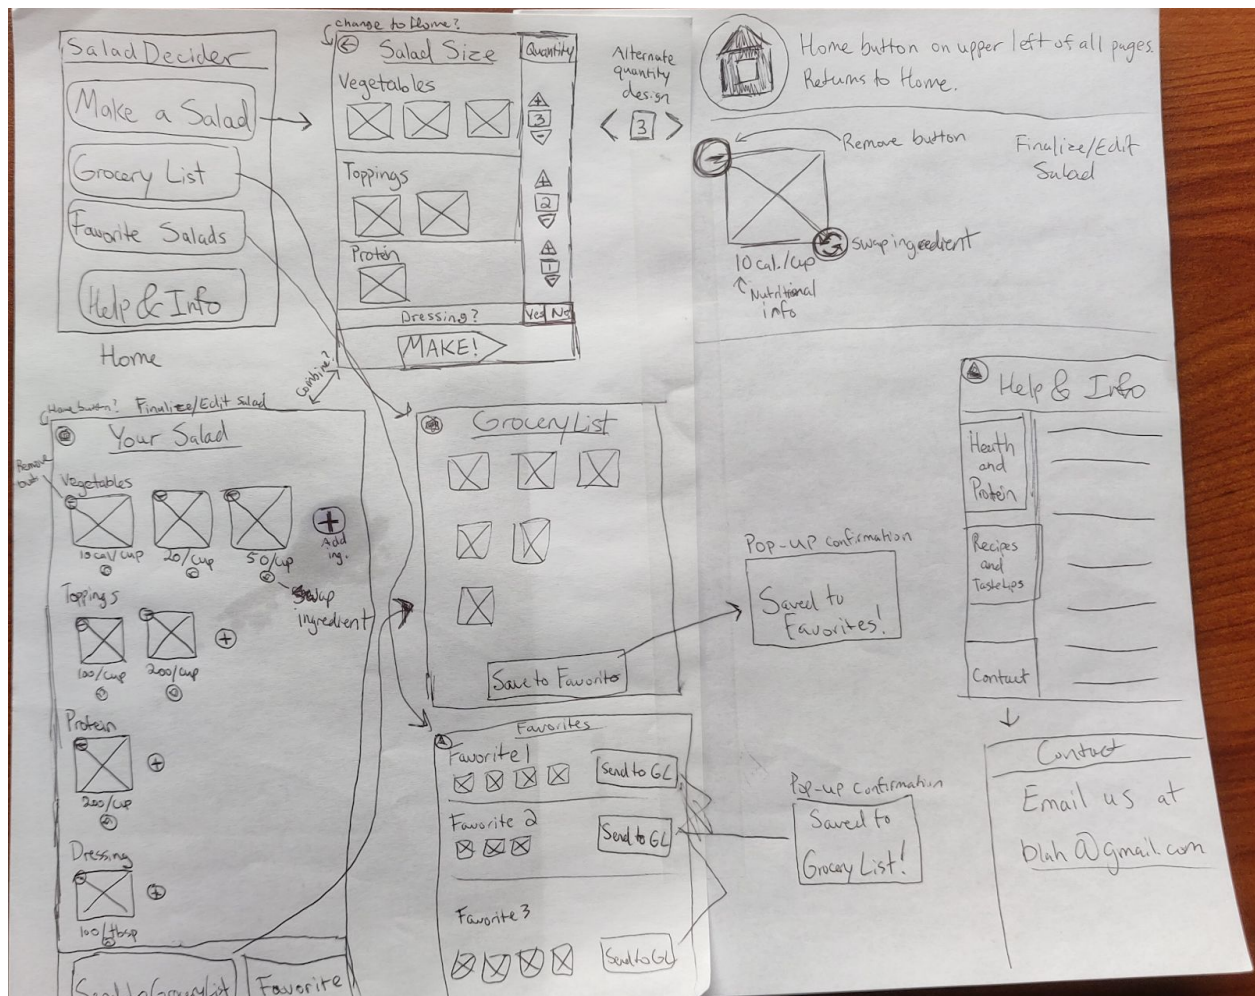 Salad Decider
Make a Salad
Grocery List
Favorite Salads
Help & Info
Home
change to Home?
Salad Size
Quantity
Vegetables
3
Toppings
2
Protein
1
Dressing?
Yes No
MAKE!
Alternate
quantity
design
3
Home button on upper left of all pages.
Returns to Home.
Remove button
Finalize/Edit
Salad
swap ingredient
10 cal./cup
Nutritional
info
Combine?
Home button?
Finalize/Edit Salad
Your Salad
Remove
Vegetables
10 cal/cup
20/cup
50/cup
Add
ing.
Swap
ingredient
Toppings
100/cup
200/cup
Protein
200/cup
Dressing
100/tbsp
Send to Grocery List
Favorite
Grocery List
Save to Favorite
Pop-up confirmation
Saved to
Favorites!
Favorites
Favorite 1
Send to GL
Favorite 2
Send to GL
Favorite 3
Send to GL
Pop-up confirmation
Saved to
Grocery List!
Help & Info
Heath
and
Protein
Recipes
and
Contact
Contact
Email us at
blah@gmail.com